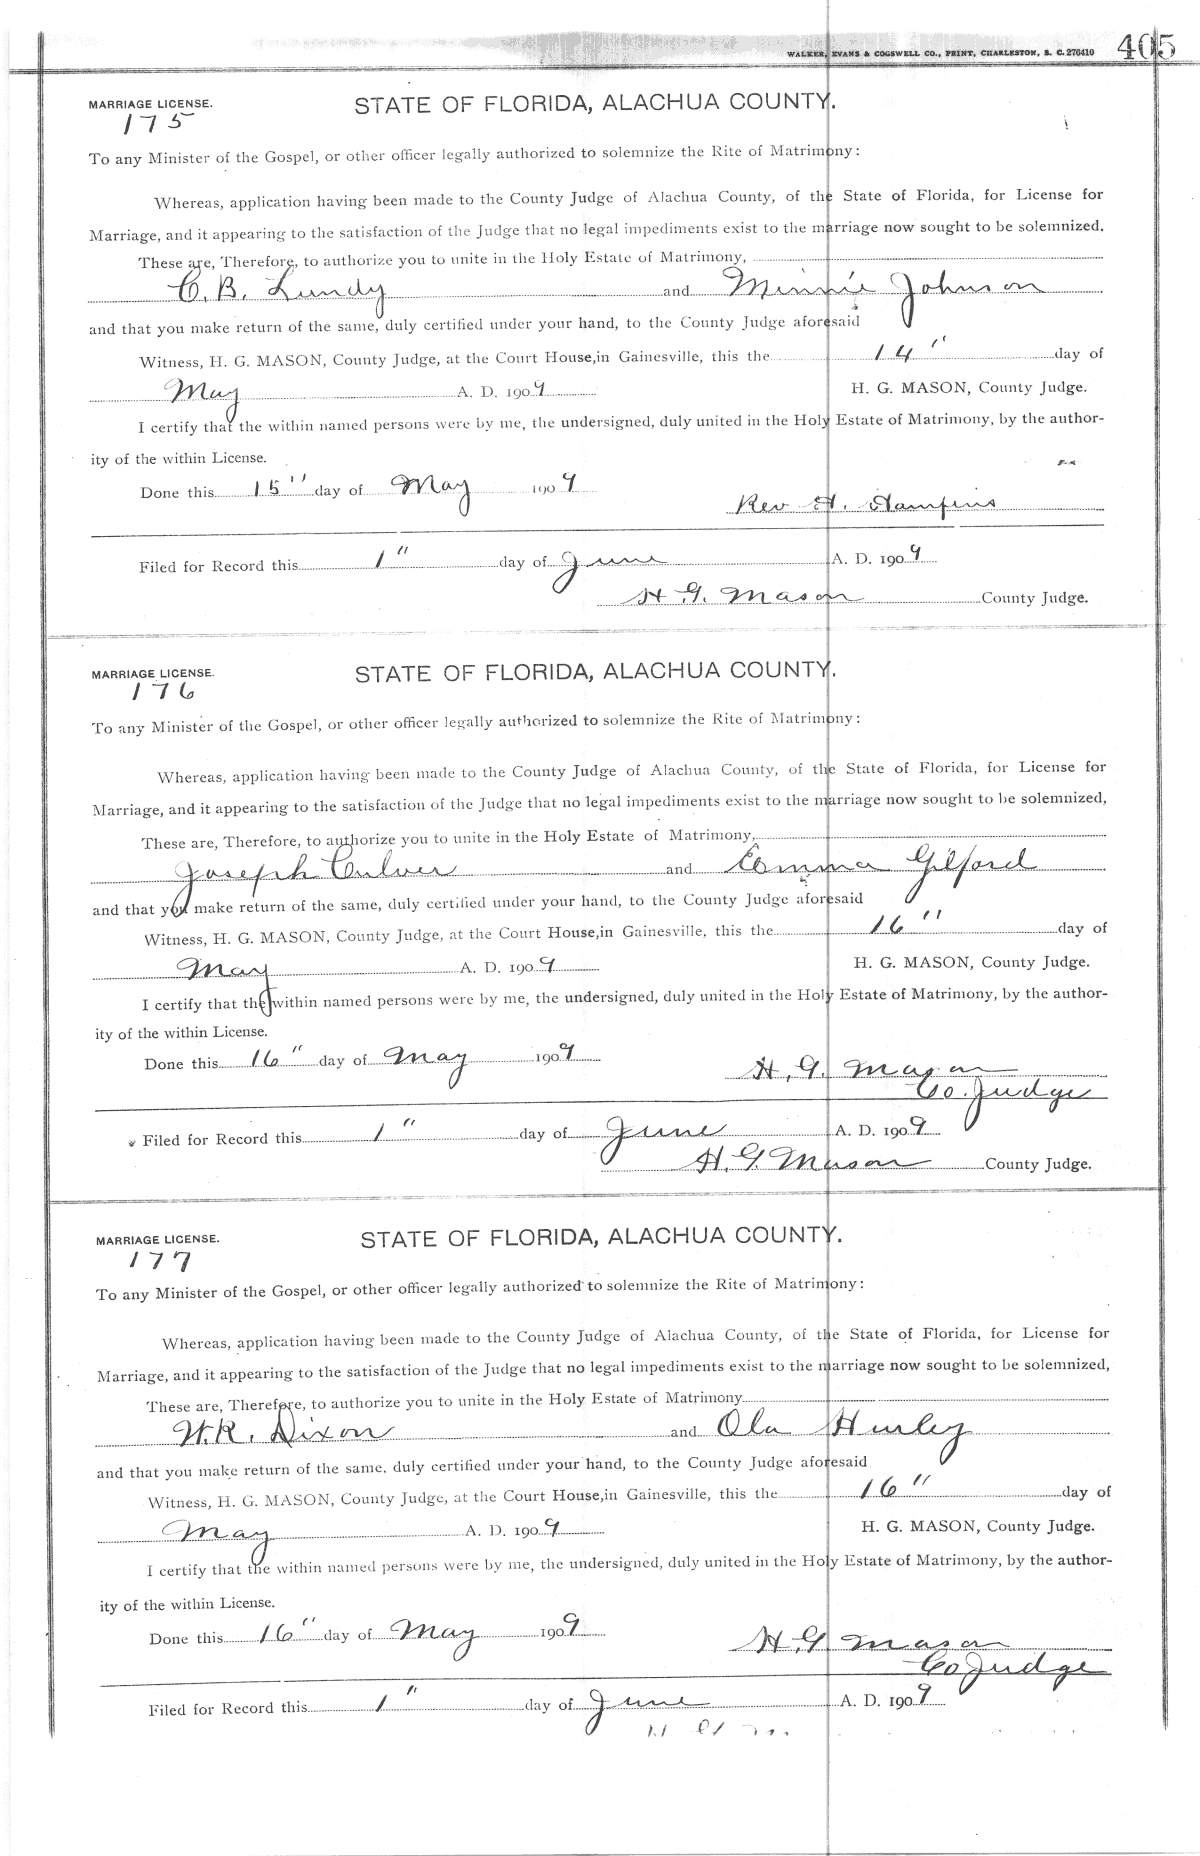 WALKER, EVANS & COGSWELL CO., PRINT, CHARLESTON, S. C. 276410 405
MARRIAGE LICENSE. STATE OF FLORIDA, ALACHUA COUNTY.
175
To any Minister of the Gospel, or other officer legally authorized to solemnize the Rite of Matrimony:
Whereas, application having been made to the County Judge of Alachua County, of the State of Florida, for License for
Marriage, and it appearing to the satisfaction of the Judge that no legal impediments exist to the marriage now sought to be solemnized.
These are, Therefore, to authorize you to unite in the Holy Estate of Matrimony,
C. B. Lundy and Minnie Johnson
and that you make return of the same, duly certified under your hand, to the County Judge aforesaid
Witness, H. G. MASON, County Judge, at the Court House, in Gainesville, this the 14" day of
May A. D. 1909 H. G. MASON, County Judge.
I certify that the within named persons were by me, the undersigned, duly united in the Holy Estate of Matrimony, by the author-
ity of the within License.
Done this 15" day of May 1909
Rev H.
Filed for Record this 1" day of June A. D. 1909
H. G. Mason County Judge.
MARRIAGE LICENSE. STATE OF FLORIDA, ALACHUA COUNTY.
176
To any Minister of the Gospel, or other officer legally authorized to solemnize the Rite of Matrimony:
Whereas, application having been made to the County Judge of Alachua County, of the State of Florida, for License for
Marriage, and it appearing to the satisfaction of the Judge that no legal impediments exist to the marriage now sought to be solemnized,
These are, Therefore, to authorize you to unite in the Holy Estate of Matrimony,
Joseph Culver and Emma Gilford
and that you make return of the same, duly certified under your hand, to the County Judge aforesaid
Witness, H. G. MASON, County Judge, at the Court House, in Gainesville, this the 16" day of
May A. D. 1909 H. G. MASON, County Judge.
I certify that the within named persons were by me, the undersigned, duly united in the Holy Estate of Matrimony, by the author-
ity of the within License.
Done this 16" day of May 1909 H. G. Mason
Co. Judge
Filed for Record this 1" day of June A. D. 1909
H. G. Mason County Judge.
MARRIAGE LICENSE. STATE OF FLORIDA, ALACHUA COUNTY.
177
To any Minister of the Gospel, or other officer legally authorized to solemnize the Rite of Matrimony:
Whereas, application having been made to the County Judge of Alachua County, of the State of Florida, for License for
Marriage, and it appearing to the satisfaction of the Judge that no legal impediments exist to the marriage now sought to be solemnized,
These are, Therefore, to authorize you to unite in the Holy Estate of Matrimony
W. R. Dixon and Ola Hurley
and that you make return of the same, duly certified under your hand, to the County Judge aforesaid
Witness, H. G. MASON, County Judge, at the Court House, in Gainesville, this the 16" day of
May A. D. 1909 H. G. MASON, County Judge.
I certify that the within named persons were by me, the undersigned, duly united in the Holy Estate of Matrimony, by the author-
ity of the within License.
Done this 16" day of May 1909 H. G. Mason
Co Judge
Filed for Record this 1" day of June A. D. 1909